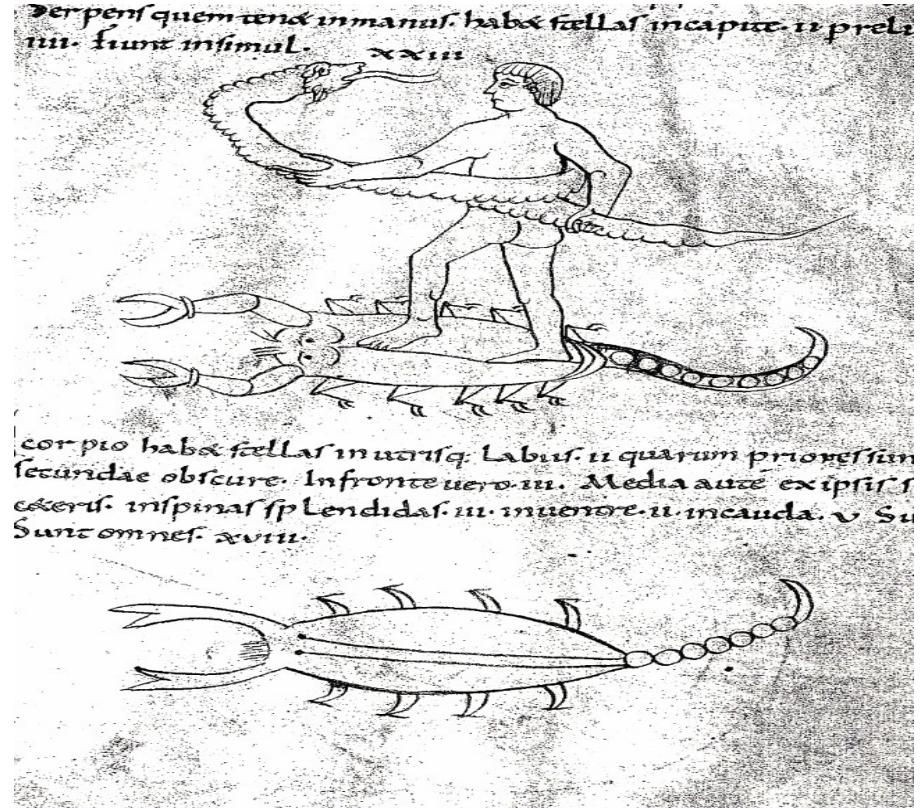 Serpens quem tenet inmanus. habet stellas incapite. ii preli
iiii. fiunt insimul. xxiii
corpio habet stellas inutrisq: Labiis. ii quarum priores sun
secundae obscure. Infronte uero. iii. Media aute ex ipsis s
ceteris. inspinas spLendidas. iii. inuentre. ii. incauda. v Su
Sunt omnes. xviii.